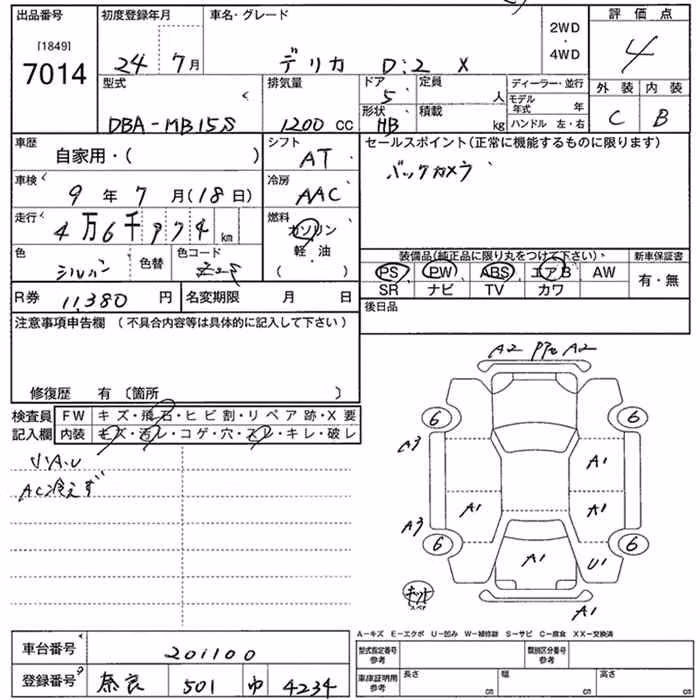 出品番号
[1849]
7014
初度登録年月
24年 7月
車名・グレード
デリカ D:2 X
2WD
・
4WD
評価点
4
外装 内装
C B
型式
DBA-MB15S
排気量
1200 cc
ドア
5
形状
HB
定員
人
積載
kg
ディーラー・並行
モデル年式 年
ハンドル 左・右
車歴
自家用・( )
シフト
AT
セールスポイント(正常に機能するものに限ります)
バックカメラ
車検
9年 7月(18日)
冷房
AAC
走行
4万6千974km
燃料
ガソリン
軽・油
( )
色
シルバー
色替
色コード
装備品(純正品に限り丸をつけて下さい)
PS PW ABS エアB AW
SR ナビ TV カワ
新車保証書
有・無
R券 11,380 円
名変期限 月 日
後日品
注意事項申告欄 (不具合内容等は具体的に記入して下さい)
修復歴 有〔箇所 〕
検査員
記入欄
FW キズ・飛石・ヒビ割・リペア跡・X要
内装 キズ・汚レ・コゲ・穴・スレ・キレ・破レ
小A.U
AC冷えず
A2 A2
6 6
A3 A1
A3 A1 A1
6 6
A1 U1
キット
A1
A−キズ E−エクボ U−凹み W−補修跡 S−サビ C−腐食 XX−交換済
車台番号 201100
登録番号 奈良 501 ゆ 4234
型式指定番号
参考
類別区分番号
参考
車庫証明用
参考
長さ cm
幅 cm
高さ cm